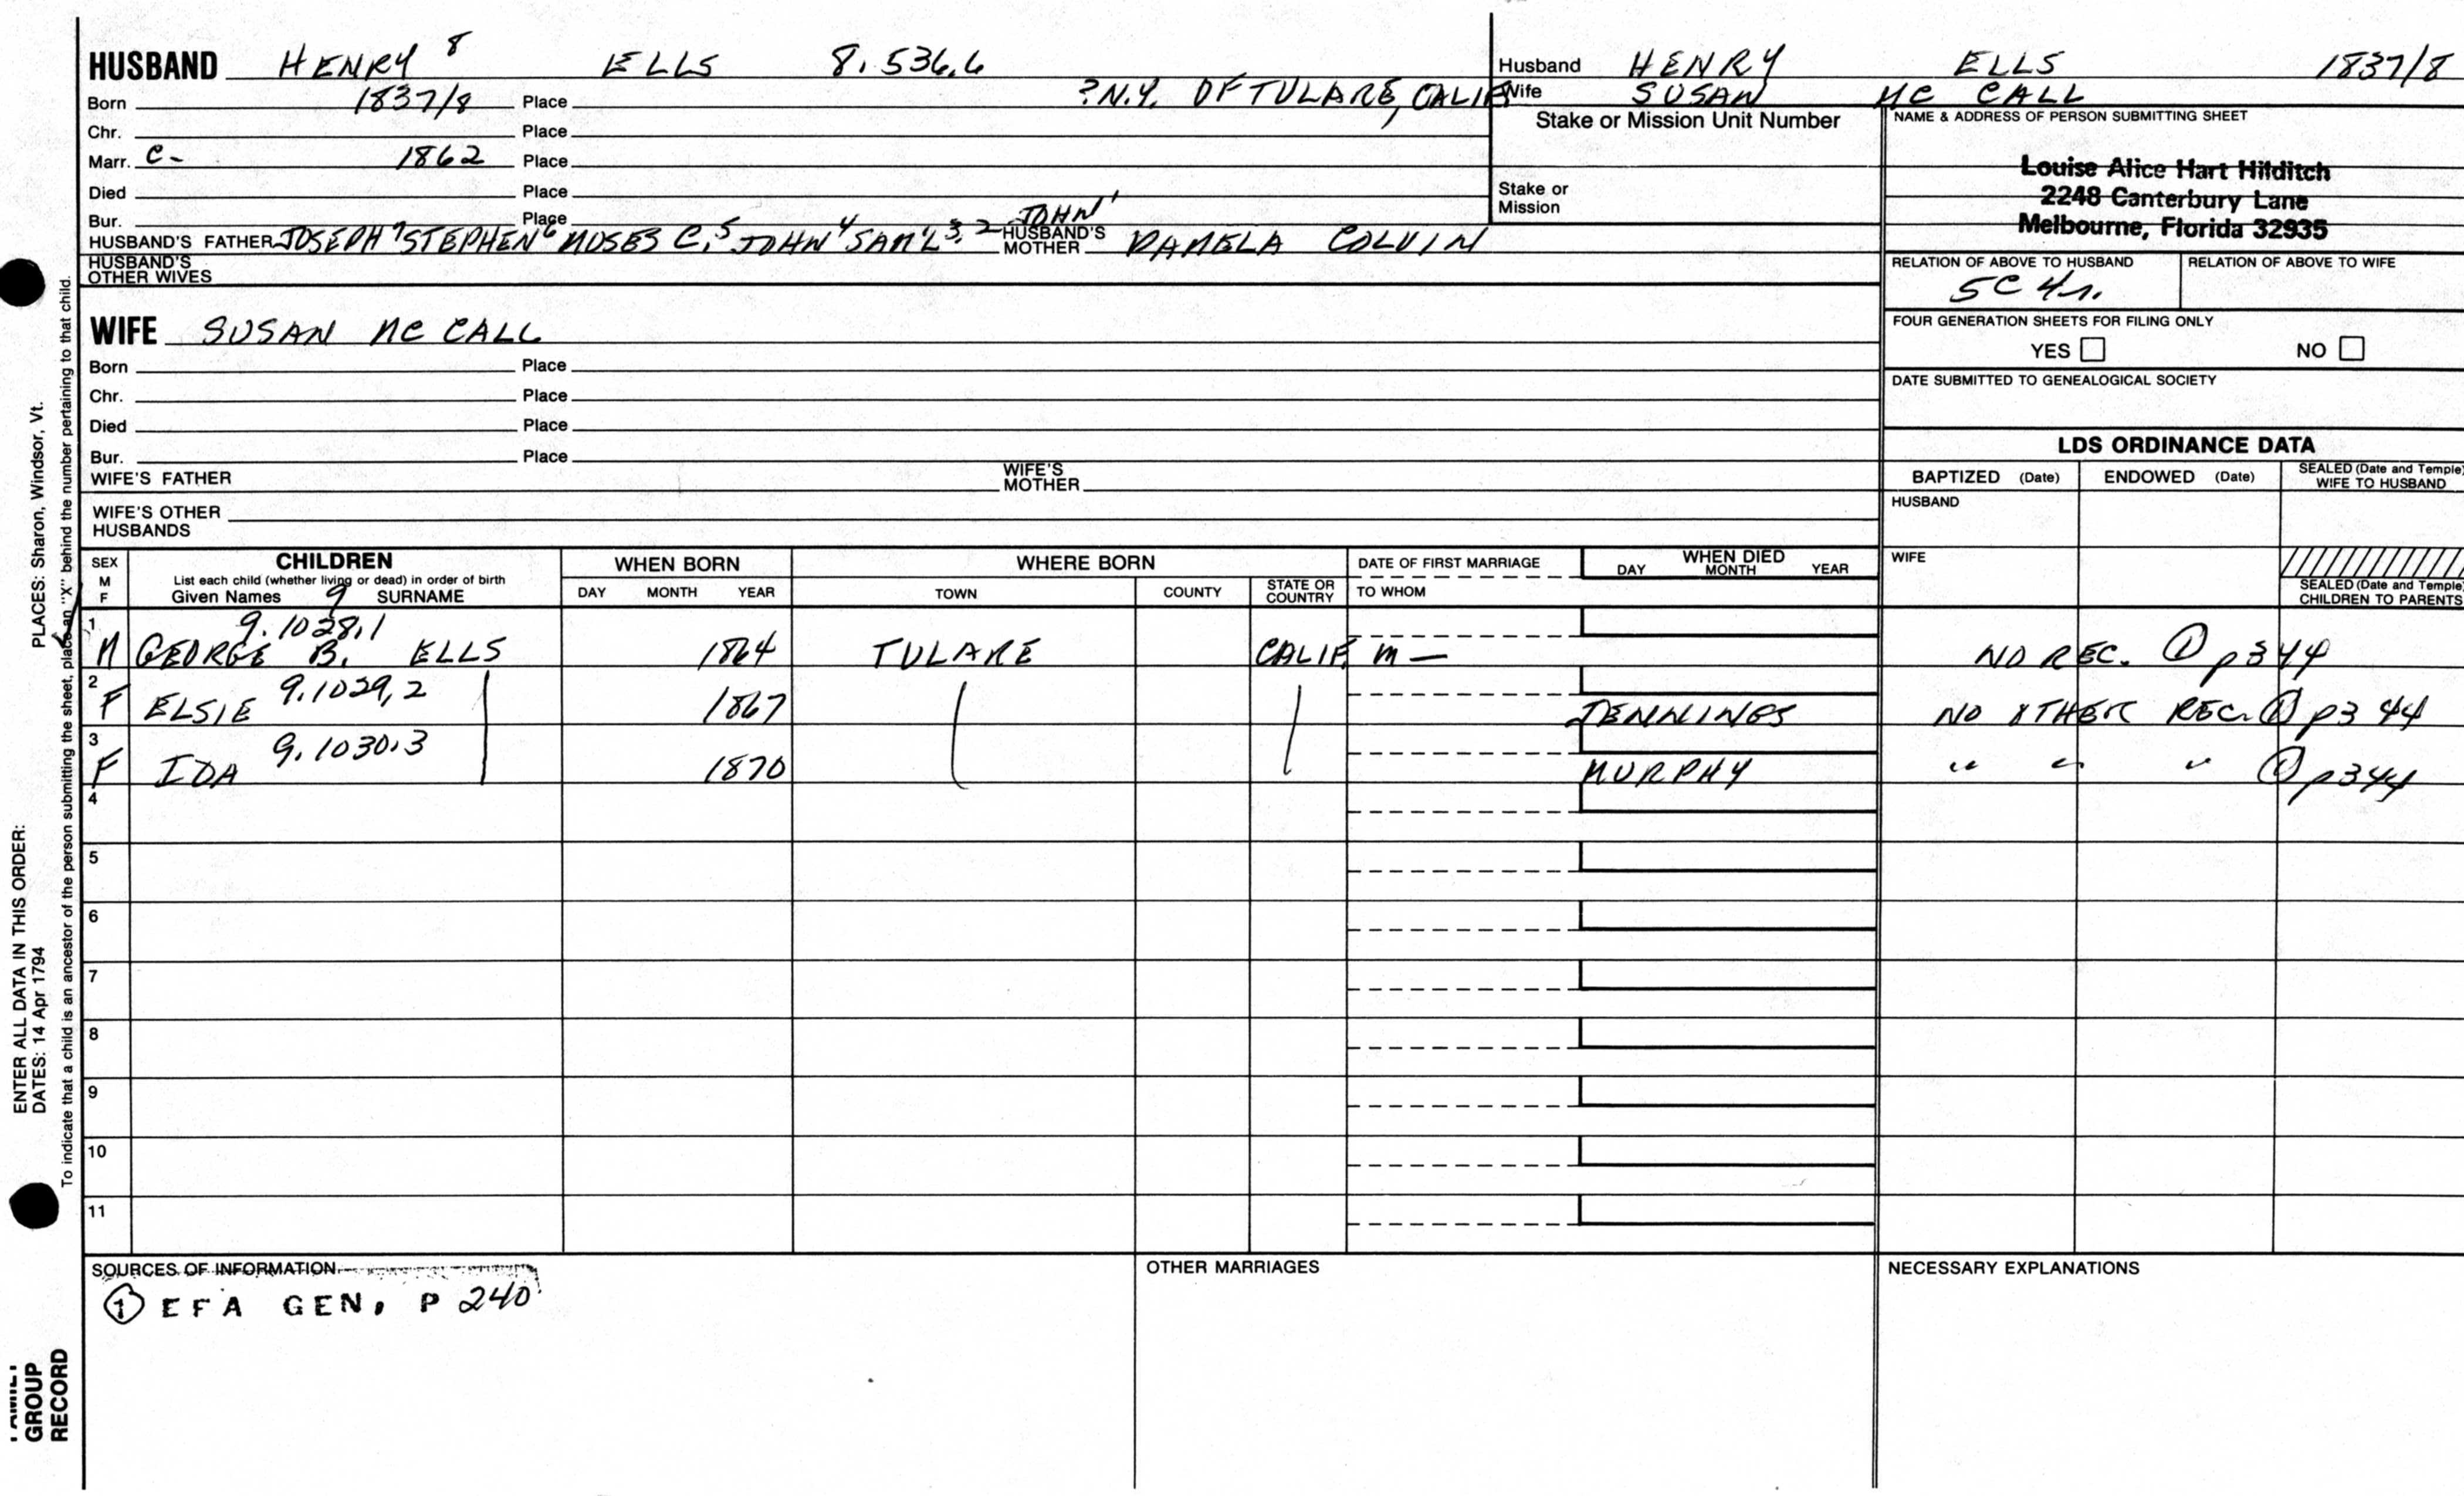 HUSBAND HENRY 8 ELLS 8.536.6
Born 1837/8 Place ?N.Y. OF TULARE, CALIF
Chr. Place
Marr. C- 1862 Place
Died Place
Bur. Place
HUSBAND'S FATHER JOSEPH 7 STEPHEN 6 MOSES C. 5 JOHN 4 SAM'L 3. 2 JOHN 1 HUSBAND'S MOTHER PAMELA COLVIN
HUSBAND'S OTHER WIVES
Husband HENRY ELLS 1837/8
Wife SUSAN MC CALL
Stake or Mission Unit Number
Stake or Mission
NAME & ADDRESS OF PERSON SUBMITTING SHEET
Louise Alice Hart Hilditch
2248 Canterbury Lane
Melbourne, Florida 32935
RELATION OF ABOVE TO HUSBAND RELATION OF ABOVE TO WIFE
5C 4r.
FOUR GENERATION SHEETS FOR FILING ONLY
YES NO
DATE SUBMITTED TO GENEALOGICAL SOCIETY
WIFE SUSAN MC CALL
Born Place
Chr. Place
Died Place
Bur. Place
WIFE'S FATHER WIFE'S MOTHER
WIFE'S OTHER HUSBANDS
LDS ORDINANCE DATA
BAPTIZED (Date) ENDOWED (Date) SEALED (Date and Temple) WIFE TO HUSBAND
HUSBAND
WIFE
SEALED (Date and Temple) CHILDREN TO PARENTS
SEX M F CHILDREN List each child (whether living or dead) in order of birth Given Names 9 SURNAME
WHEN BORN DAY MONTH YEAR
WHERE BORN TOWN COUNTY STATE OR COUNTRY
DATE OF FIRST MARRIAGE TO WHOM
WHEN DIED DAY MONTH YEAR
1 9.1028.1
M GEORGE B. ELLS 1864 TULARE CALIF. m — NO REC. 1 p344
2 9.1029.2
F ELSIE 1867 JENNINGS NO OTHER REC. 1 p344
3 9.1030.3
F IDA 1870 MURPHY " " " 1 p344
4
5
6
7
8
9
10
11
SOURCES OF INFORMATION
1 EFA GEN, P 240
OTHER MARRIAGES
NECESSARY EXPLANATIONS
ENTER ALL DATA IN THIS ORDER:
DATES: 14 Apr 1794 PLACES: Sharon, Windsor, Vt.
To indicate that a child is an ancestor of the person submitting the sheet, place an "X" behind the number pertaining to that child.
GROUP
RECORD